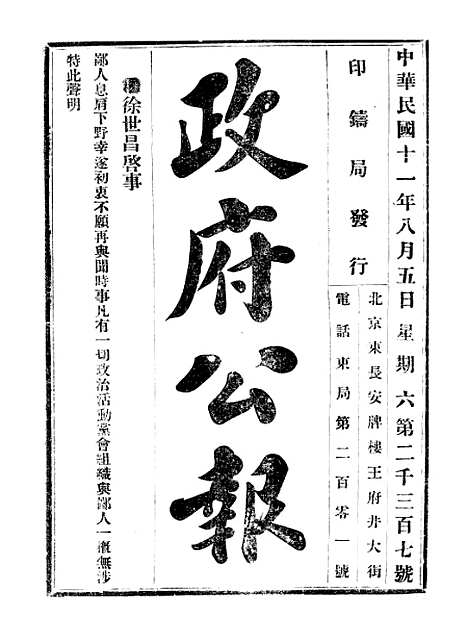 中華民國十一年八月五日星期六第二千三百七號
印鑄局發行
北京東長安牌樓王府井大街
電話東局第二百零一號
政府公報
徐世昌啓事
鄙人息肩下野幸遂初衷不願再與聞時事凡有一切政治活動黨會組織與鄙人一概無涉
特此聲明